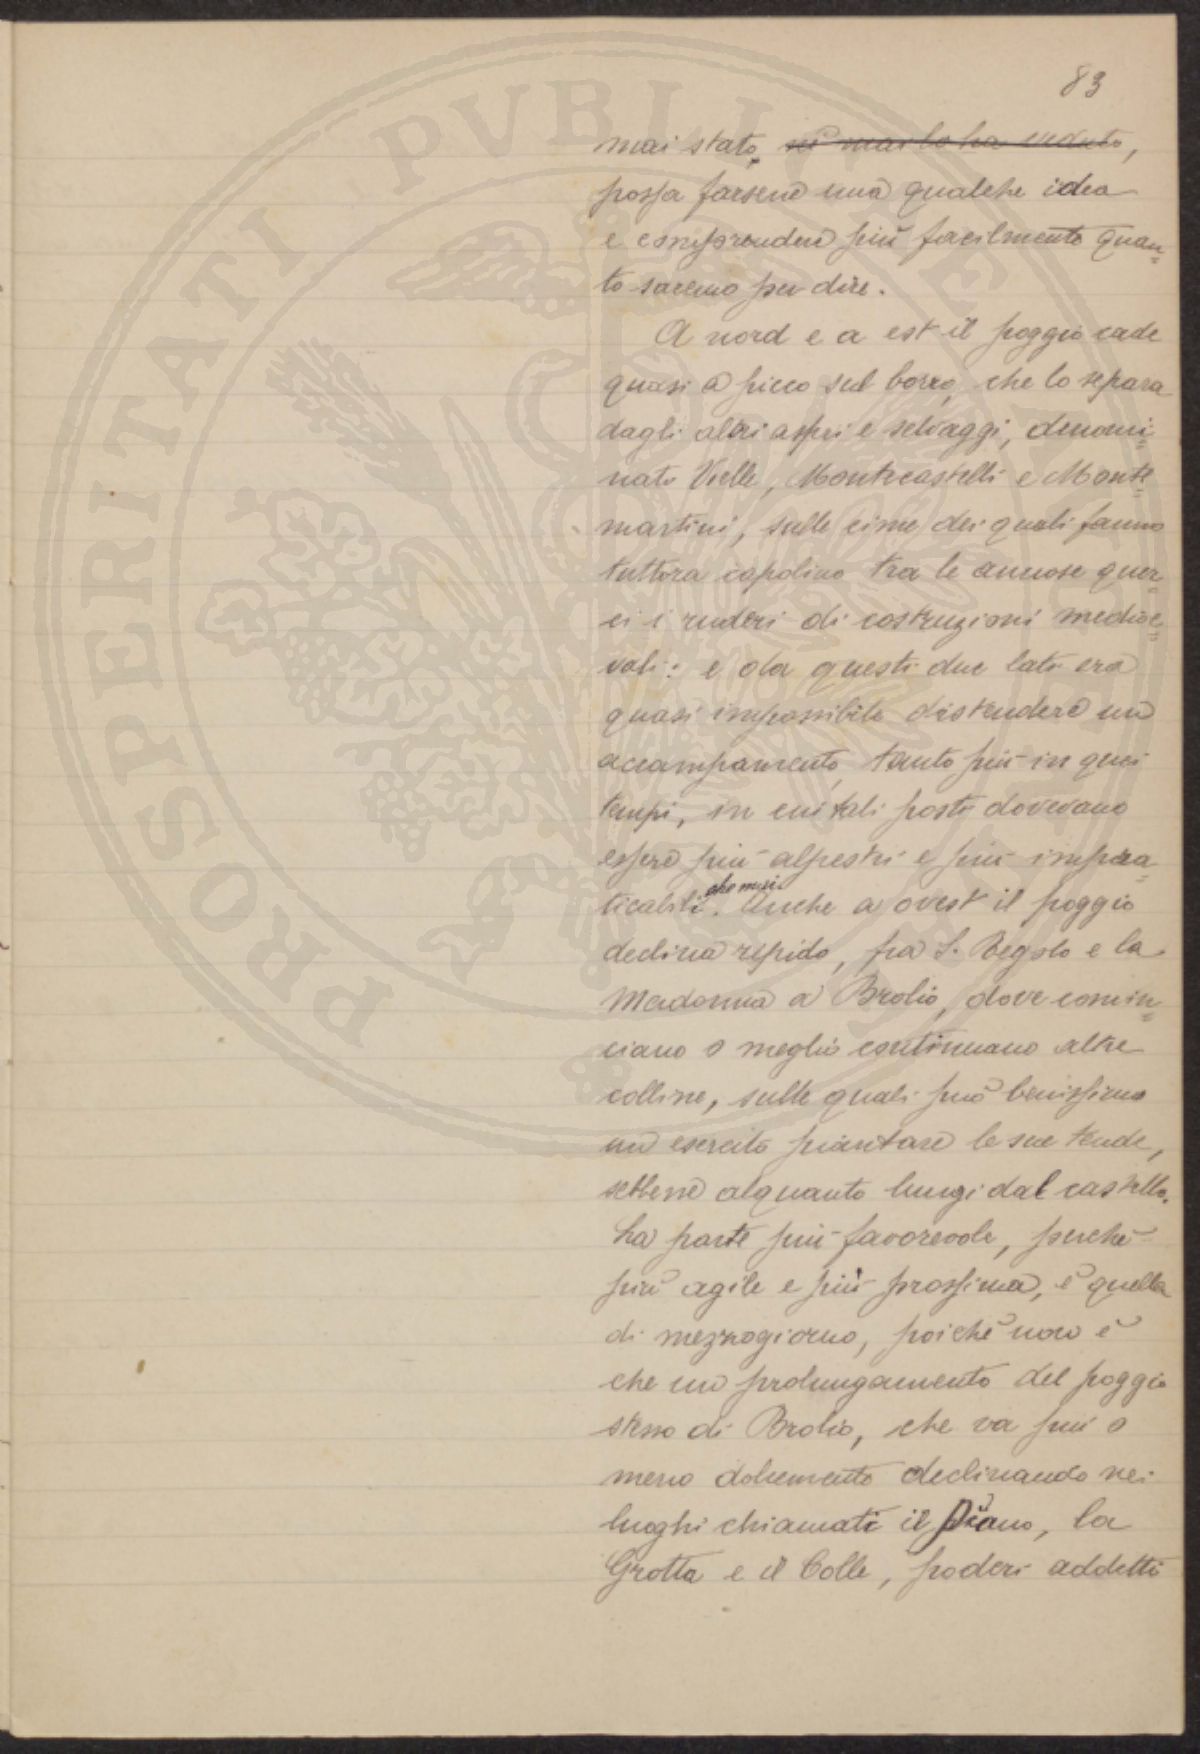 83
mai stato, nè mai lo ha veduto,
possa farsene una qualche idea
e comprendere più facilmente quan=
to saremo per dire.
A nord e a est il poggio cade
quasi a picco sul borro, che lo separa
dagli altri aspri e selvaggi, denomi=
nati Vielle, Montecastelli e Monte=
martini, sulle cime dei quali fanno
tuttora capolino tra le annose quer=
ci i ruderi di costruzioni medioe=
vali: e da questi due lati era
quasi impossibile distendere un
accampamento, tanto più in quei
tempi, in cui tali posti dovevano
essere più alpestri e più impra=
ticabili che mai. Anche a ovest il poggio
declina ripido, fra S. Regolo e la
Madonna a Brolio, dove comin=
ciano o meglio continuano altre
colline, sulle quali può benissimo
un esercito piantare le sue tende,
sebbene alquanto lungi dal castello.
La parte più favorevole, perchè
più agile e più prossima, è quella
di mezzogiorno, poichè non è
che un prolungamento del poggio
stesso di Brolio, che va più o
meno dolcemente declinando nei
luoghi chiamati il Piano, la
Grotta e il Colle, poderi addetti
PROSPERITATI PVBLICAE AVGENDAE